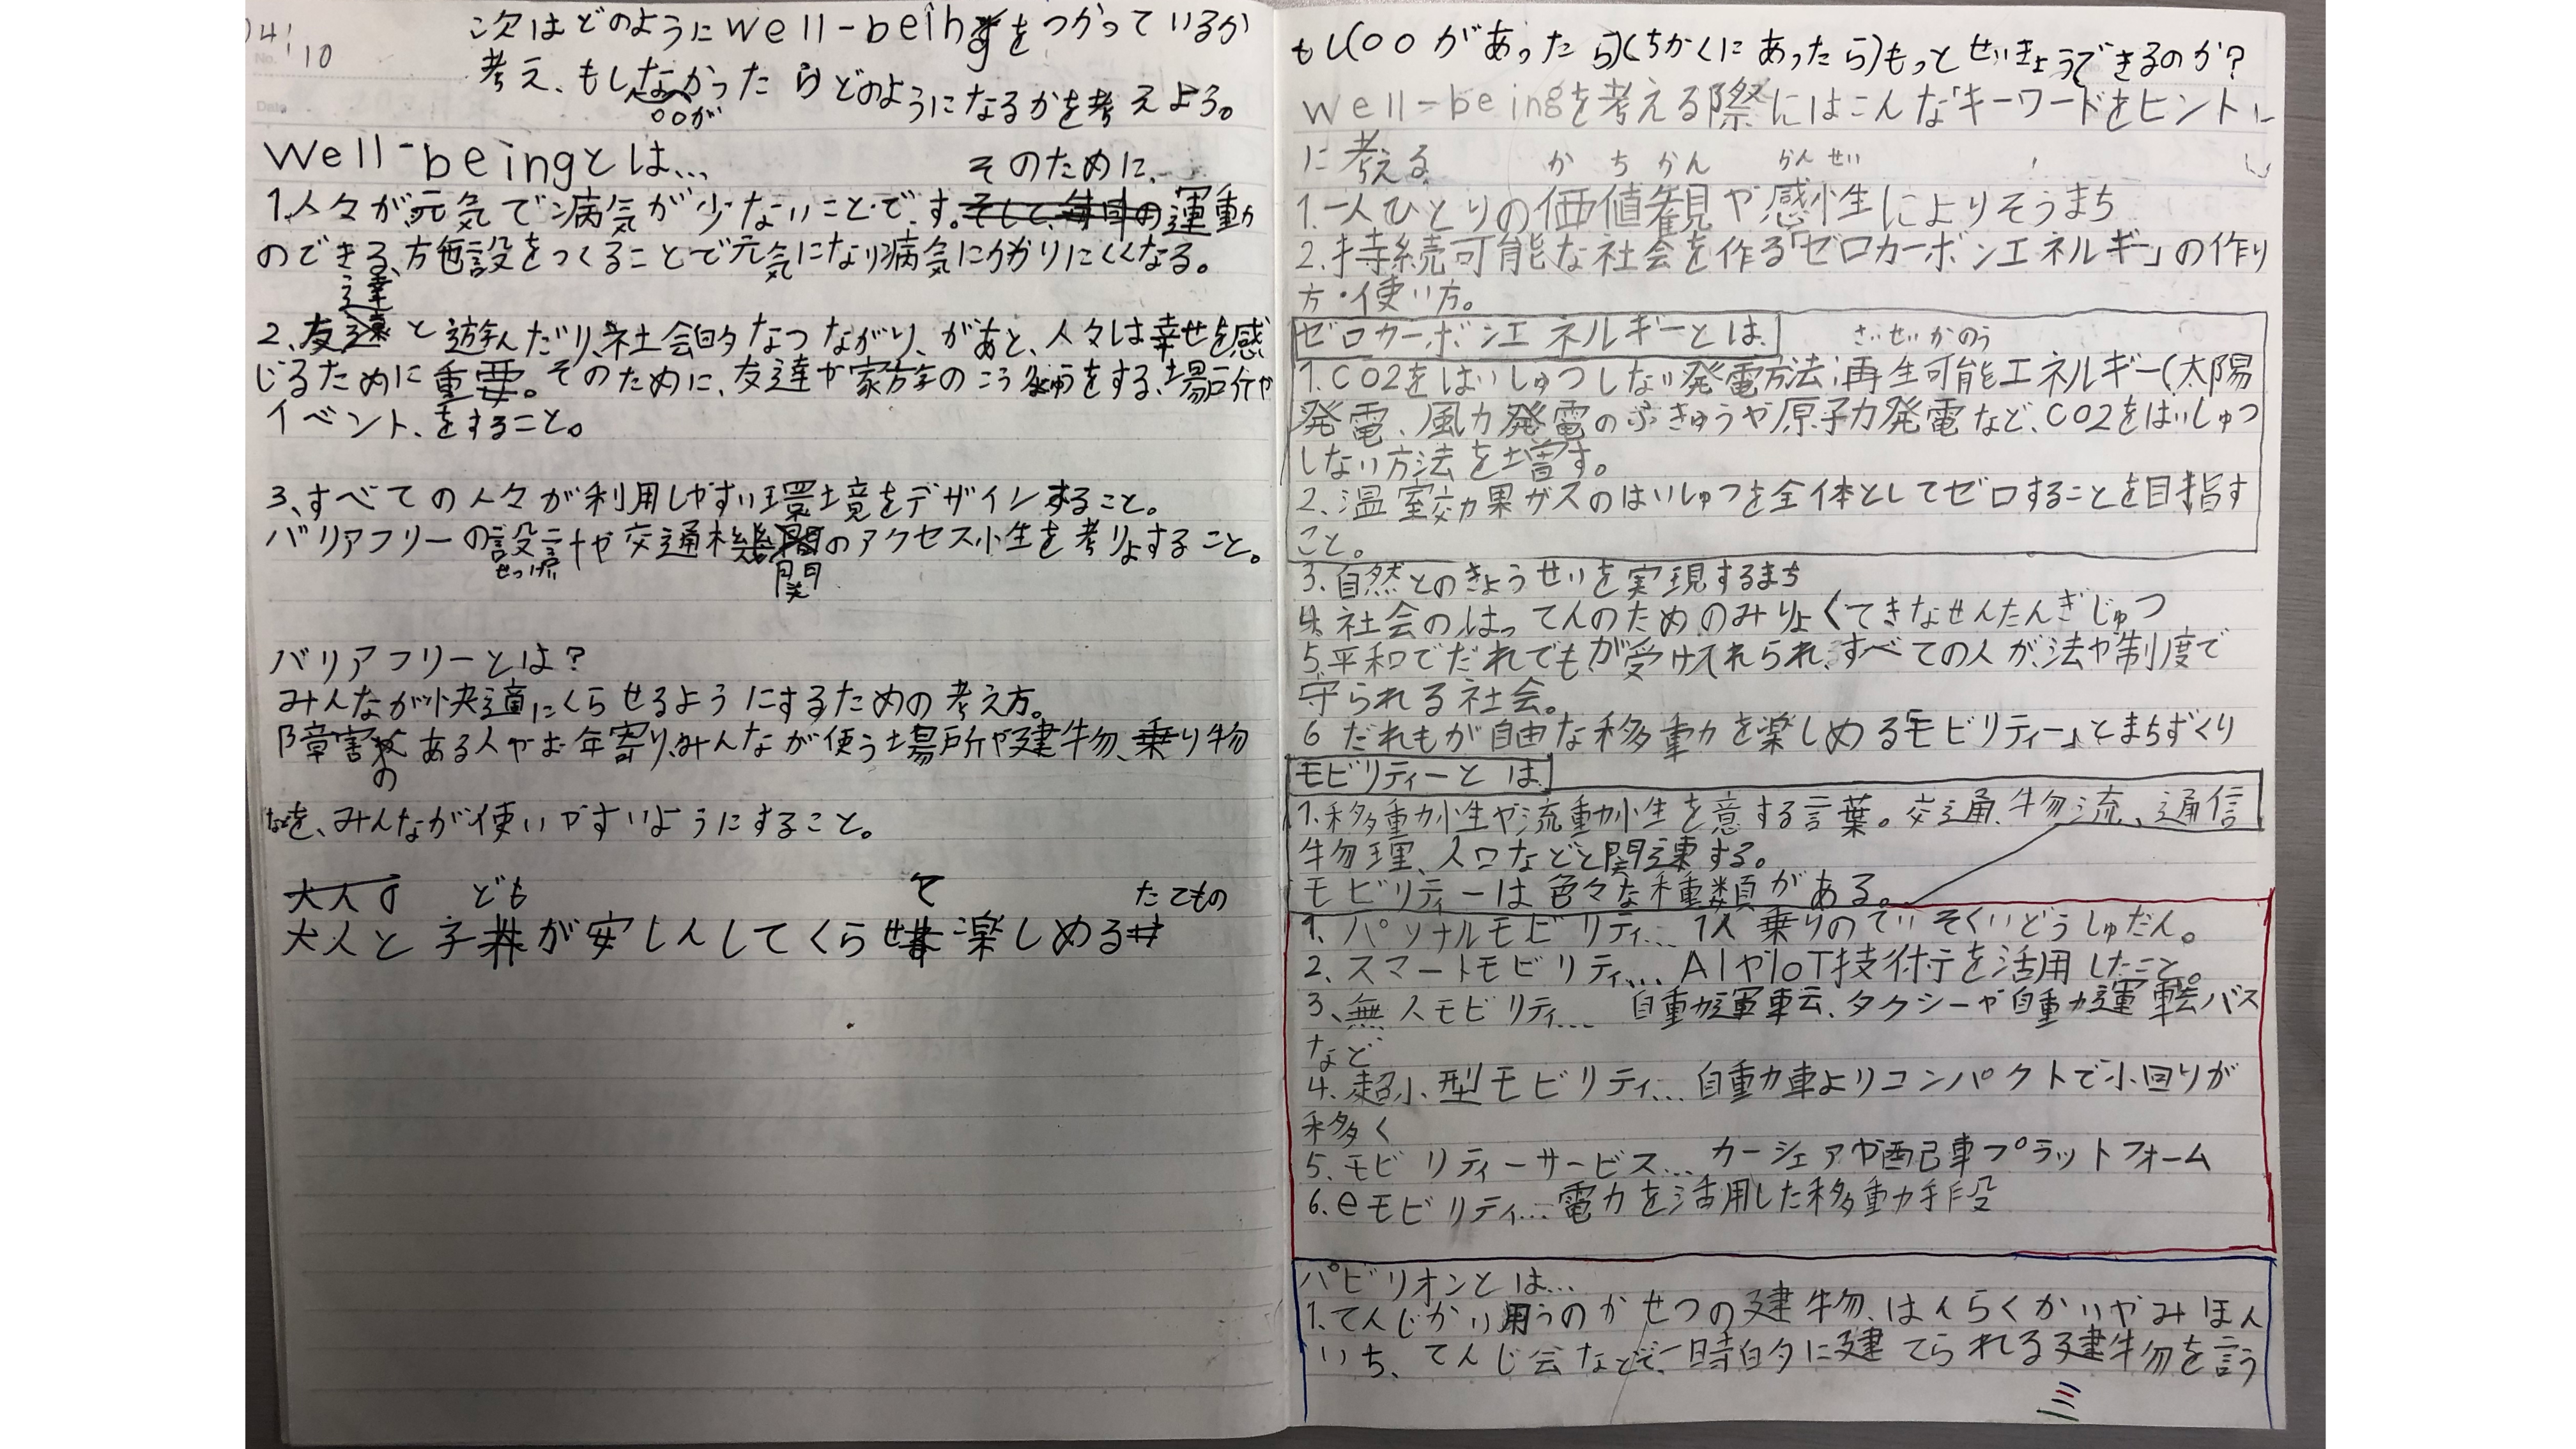 04/10
次はどのようにwell-beingをつかっているか
考え、もしなかったらどのようになるかを考えよう。
○○が
well-beingとは...
そのために、
1.人々が元気で病気が少ないことです。そして、毎日の運動
のできる、施設をつくることで元気になり病気にかかりにくくなる。
達
2、友達と遊んだり、社会的なつながり、があと、人々は幸せを感
じるために重要。そのために、友達や家族のこうりゅうをする、場所や
イベント、をすること。
3、すべての人々が利用しやすい環境をデザインすること。
バリアフリーの設計や交通機関のアクセス性を考りょすること。
せっけい
関
バリアフリーとは?
みんなが快適にくらせるようにするための考え方。
障害がある人やお年寄り、みんなが使う場所や建物、乗り物
の
などを、みんなが使いやすいようにすること。
大人の ども て たてもの
大人と子供が安しんしてくらせ楽しめる
もし(○○があったら)(ちかくにあったら)もっとせいきょうできるのか?
well-beingを考える際にはこんな「キーワードをヒント」
に考える
かちかん かんせい
1.一人ひとりの価値観や感性によりそうまち
2.持続可能な社会を作る「ゼロカーボンエネルギー」の作り
方・使い方。
ゼロカーボンエネルギーとは
さいせいかのう
1.CO2をはいしゅつしない発電方法;再生可能エネルギー(太陽
発電、風力発電のふきゅうや原子力発電など、CO2をはいしゅつ
しない方法を増す。
2.温室効果ガスのはいしゅつを全体としてゼロすることを目指す
こと。
3.自然とのきょうせいを実現するまち
4.社会のはってんのためのみりょくてきなせんたんぎじゅつ
5.平和でだれでもが受け入れられ、すべての人が、法や制度で
守られる社会。
6 だれもが自由な移動を楽しめる「モビリティー」とまちずくり
モビリティーとは
1.移動性や流動性を意する言葉。交通、物流、通信
物理、人口などと関連する。
モビリティーは色々な種類がある。
1、パソナルモビリティ... 1人乗りのていそくいどうしゅだん。
2.スマートモビリティ... AIやIoT技術を活用したこと。
3、無人モビリティ... 自動運転、タクシーや自動運転バス
など
4.超小型モビリティ... 自動車よりコンパクトで小回りが
移く
5、モビリティーサービス... カーシェアや配車プラットフォーム
6.eモビリティ... 電力を活用した移動手段
パビリオンとは...
1.てんじかい用うのかせつの建物、はくらくかいやみほん
いち、てんじ会などで、一時的に建てられる建物を言う